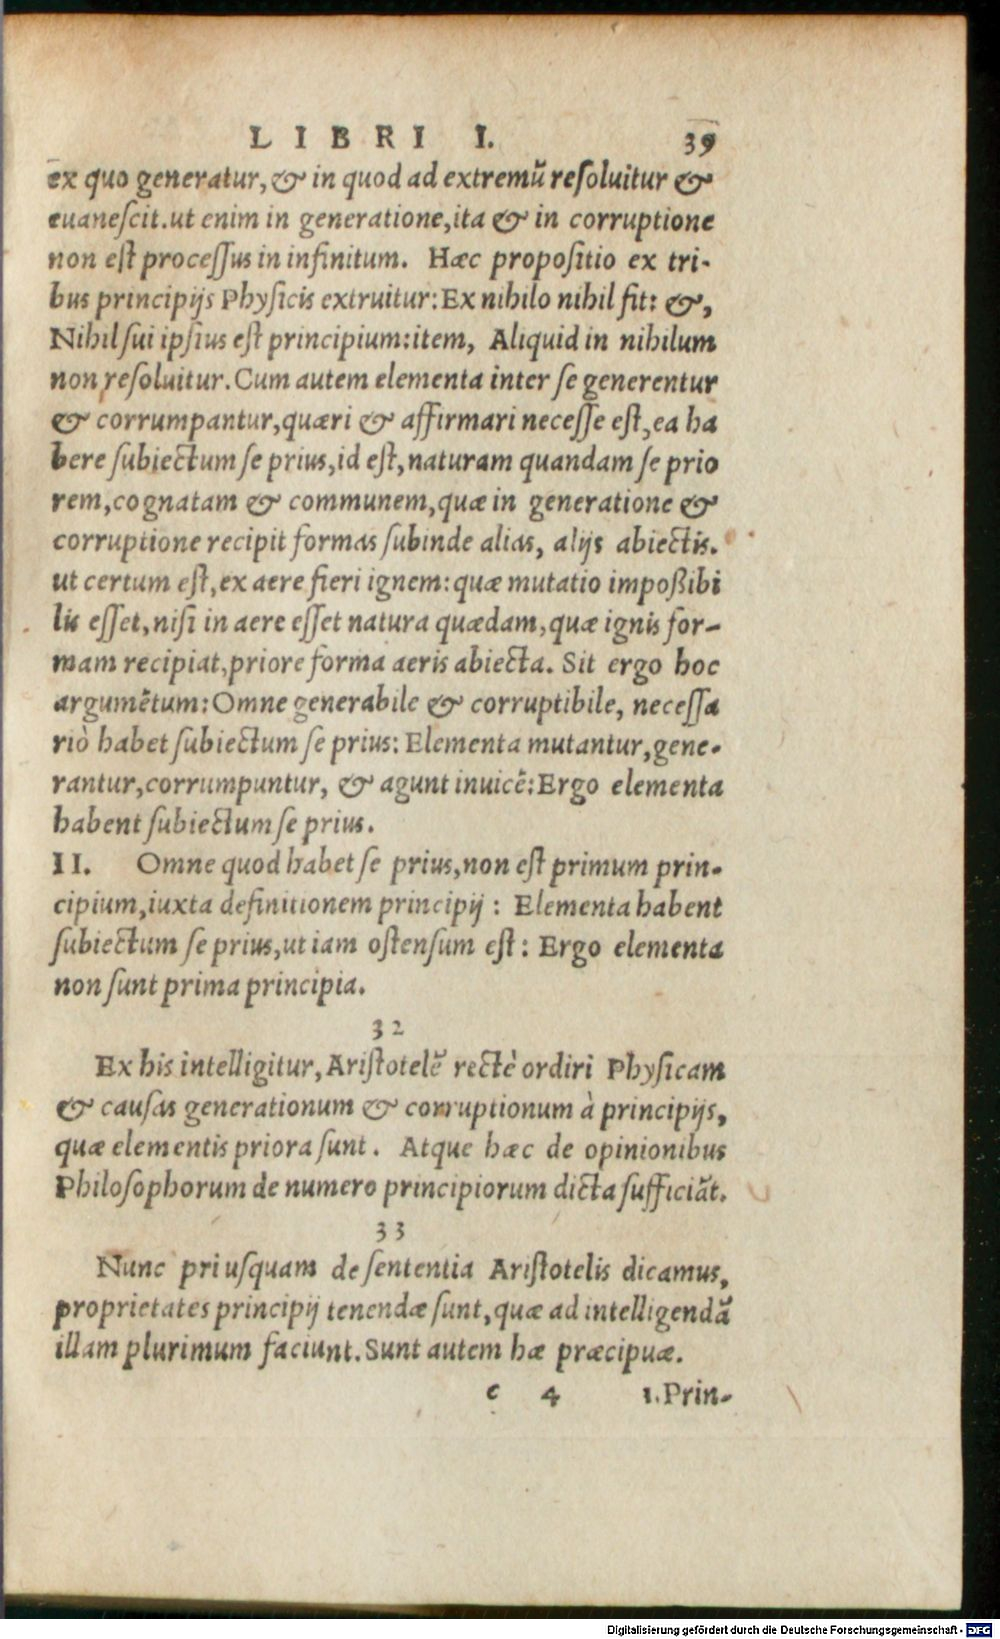 LIBRI I. 39
ex quo generatur, & in quod ad extremũ resoluitur &
euanescit. ut enim in generatione, ita & in corruptione
non est processus in infinitum. Hæc propositio ex tri-
bus principijs Physicis extruitur: Ex nihilo nihil fit: &,
Nihil sui ipsius est principium: item, Aliquid in nihilum
non resoluitur. Cum autem elementa inter se generentur
& corrumpantur, quæri & affirmari necesse est, ea ha
bere subiectum se prius, id est, naturam quandam se prio
rem, cognatam & communem, quæ in generatione &
corruptione recipit formas subinde alias, alijs abiectis.
ut certum est, ex aere fieri ignem: quæ mutatio impoßibi
lis esset, nisi in aere esset natura quædam, quæ ignis for-
mam recipiat, priore forma aeris abiecta. Sit ergo hoc
argumẽtum: Omne generabile & corruptibile, necessa
riò habet subiectum se prius: Elementa mutantur, gene-
rantur, corrumpuntur, & agunt inuicẽ: Ergo elementa
habent subiectum se prius.
II. Omne quod habet se prius, non est primum prin-
cipium, iuxta definitionem principij: Elementa habent
subiectum se prius, ut iam ostensum est: Ergo elementa
non sunt prima principia.
32
Ex his intelligitur, Aristotelẽ rectè ordiri Physicam
& causas generationum & corruptionum à principijs,
quæ elementis priora sunt. Atque hæc de opinionibus
Philosophorum de numero principiorum dicta sufficiãt.
33
Nunc priusquam de sententia Aristotelis dicamus,
proprietates principij tenendæ sunt, quæ ad intelligendã
illam plurimum faciunt. Sunt autem hæ præcipuæ.
c 4 1. Prin-
Digitalisierung gefördert durch die Deutsche Forschungsgemeinschaft - DFG